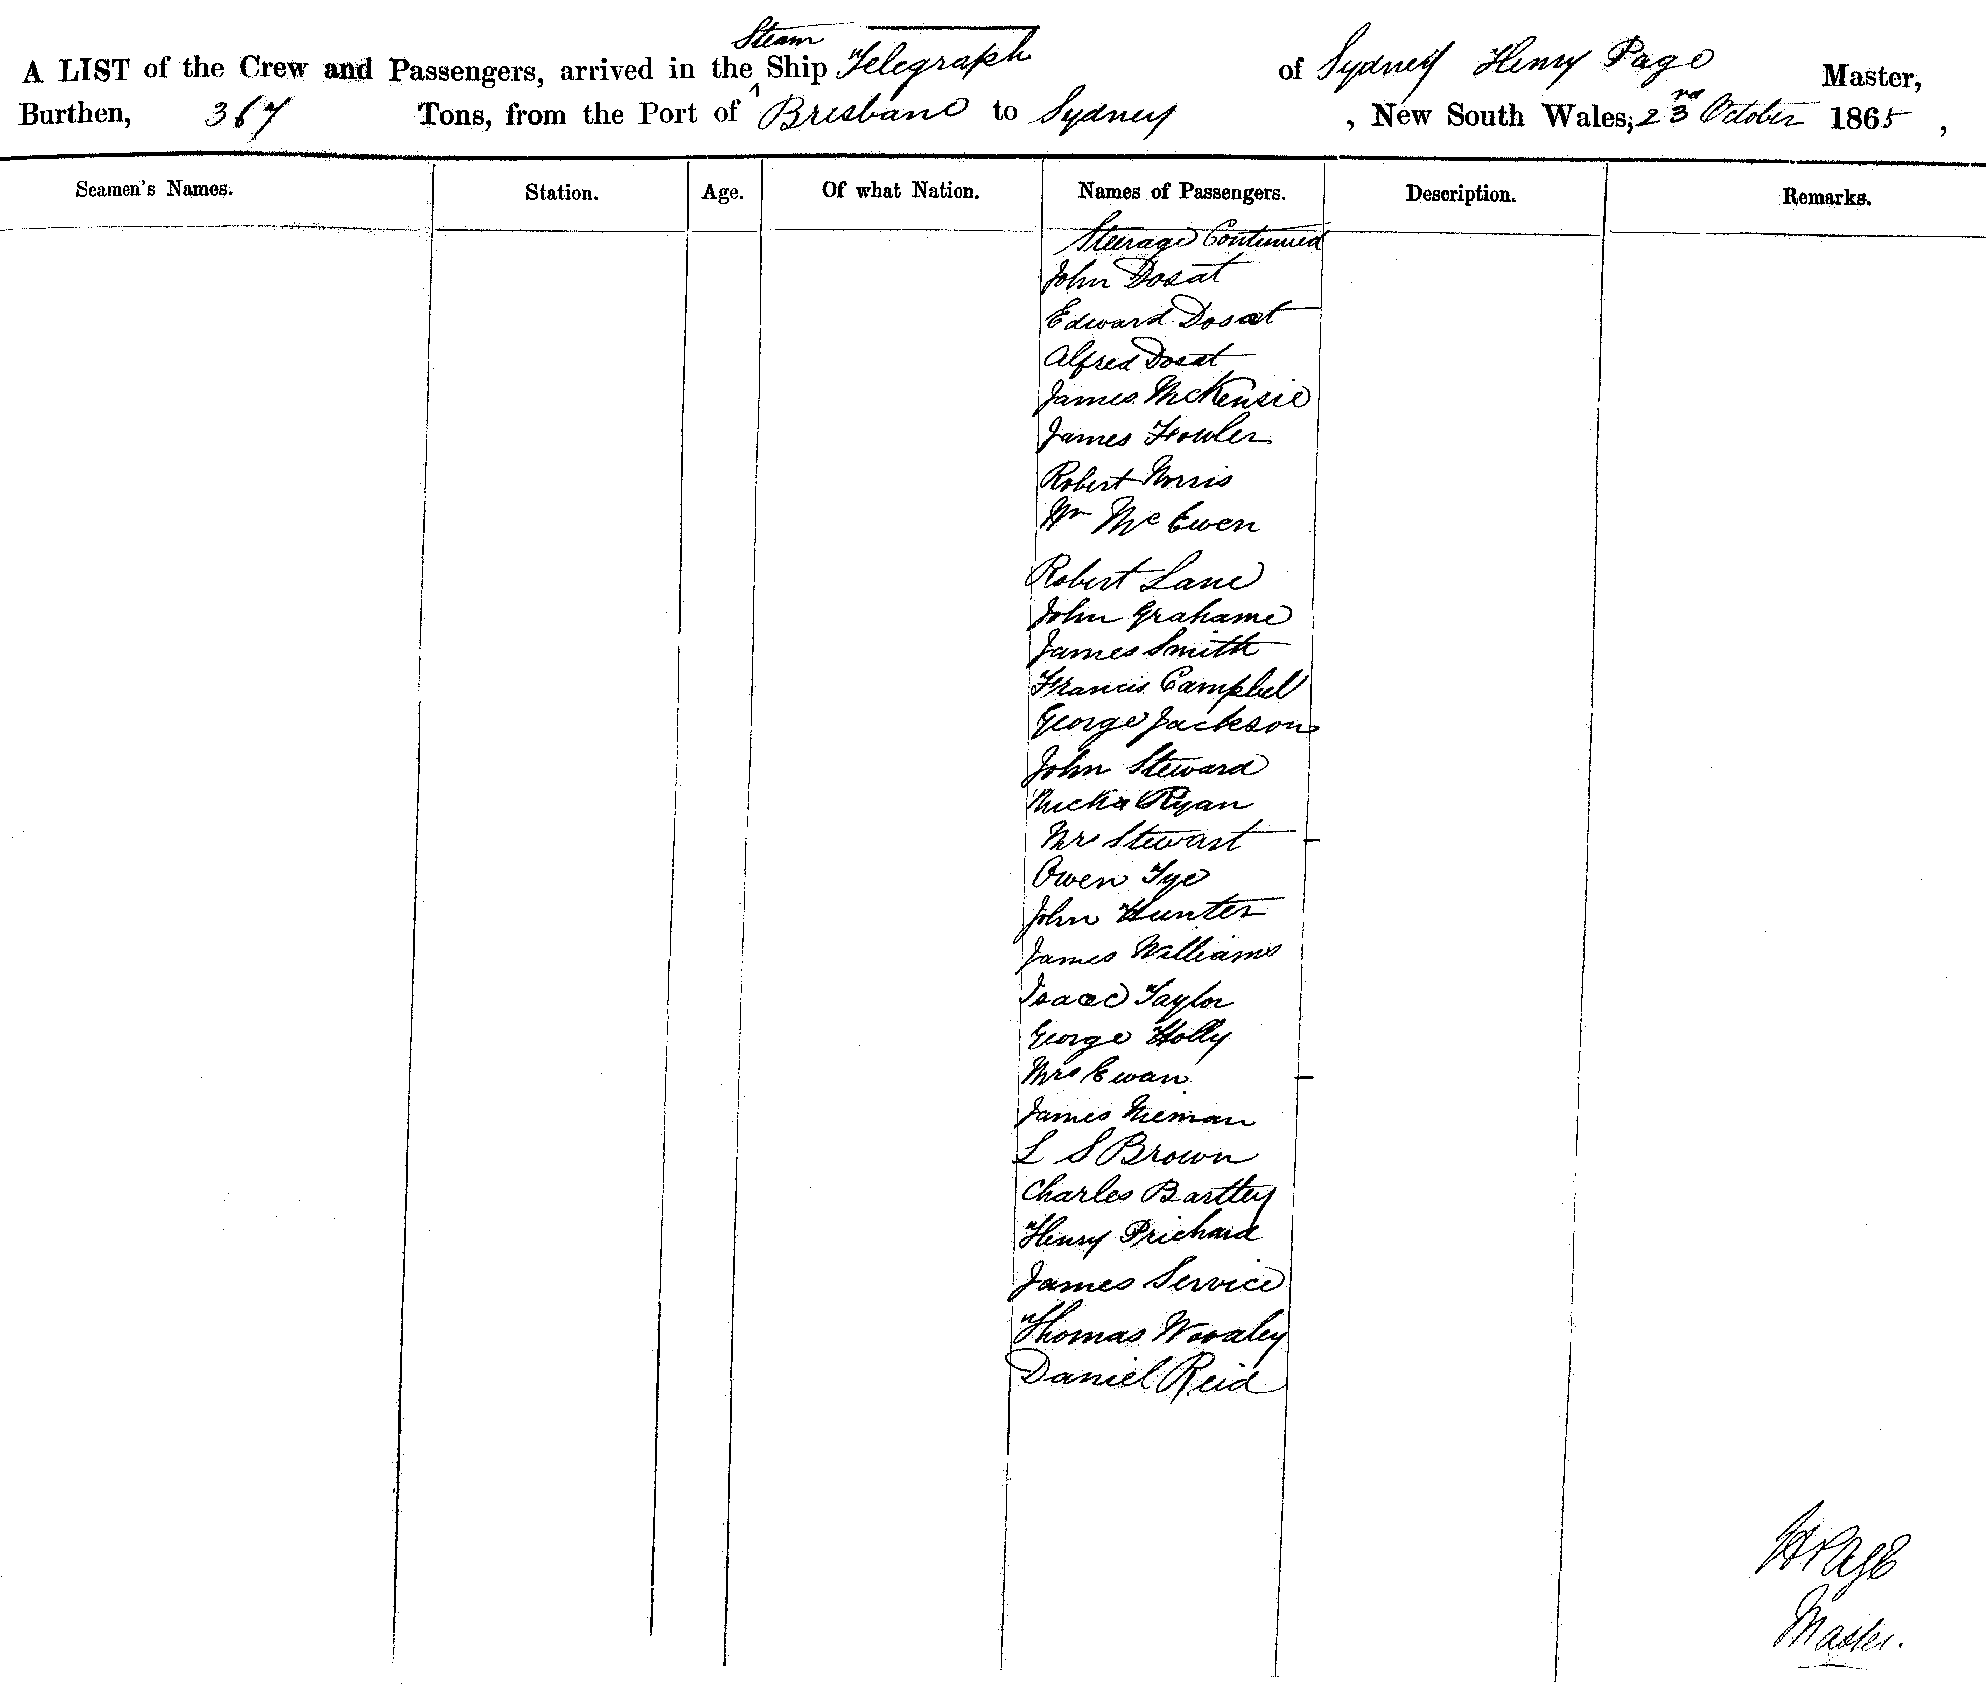 Steam
A LIST of the Crew and Passengers, arrived in the ^ Ship Telegraph of Sydney Henry Page Master,
Burthen, 367 Tons, from the Port of Brisbane to Sydney , New South Wales, 23rd October 1865 ,
Seamen's Names. Station. Age. Of what Nation. Names of Passengers. Description. Remarks.
Steerage Continued
John Dosat
Edward Dosat
Alfred Dosat
James McKensie
James Fowler
Robert Norris
Wm McEwen
Robert Lane
John Grahame
James Smith
Francis Campbel
George Jackson
John Steward
Ryan
Mrs Stewart -
Owen Tye
John Hunter
James Williams
Isaac Taylor
George Holly
Mrs Ewan -
James Nieman
L S Brown
Charles Bartley
Henry Prichard
James Service
Thomas
Daniel Reid
HPage
Master.